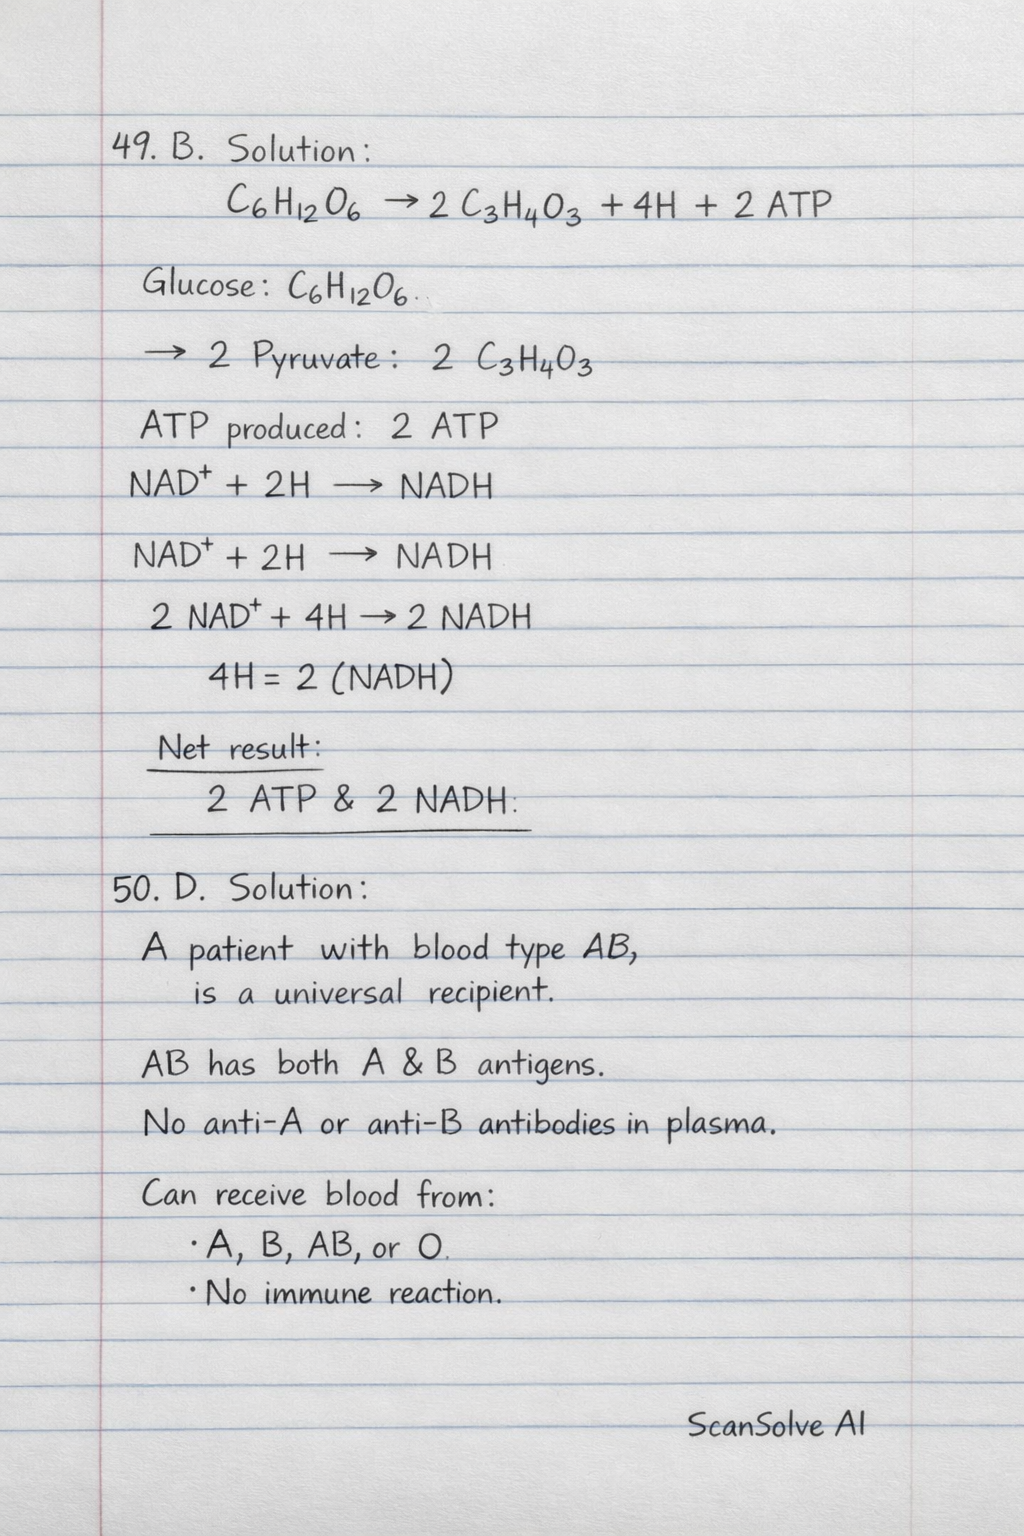 49. B. Solution:
C₆H₁₂O₆ → 2 C₃H₄O₃ + 4H + 2 ATP
Glucose: C₆H₁₂O₆.
→ 2 Pyruvate: 2 C₃H₄O₃
ATP produced: 2 ATP
NAD⁺ + 2H → NADH
NAD⁺ + 2H → NADH
2 NAD⁺ + 4H → 2 NADH
4H = 2 (NADH)
Net result:
2 ATP & 2 NADH:
50. D. Solution:
A patient with blood type AB,
is a universal recipient.
AB has both A & B antigens.
No anti-A or anti-B antibodies in plasma.
Can receive blood from:
· A, B, AB, or O.
· No immune reaction.
ScanSolve AI